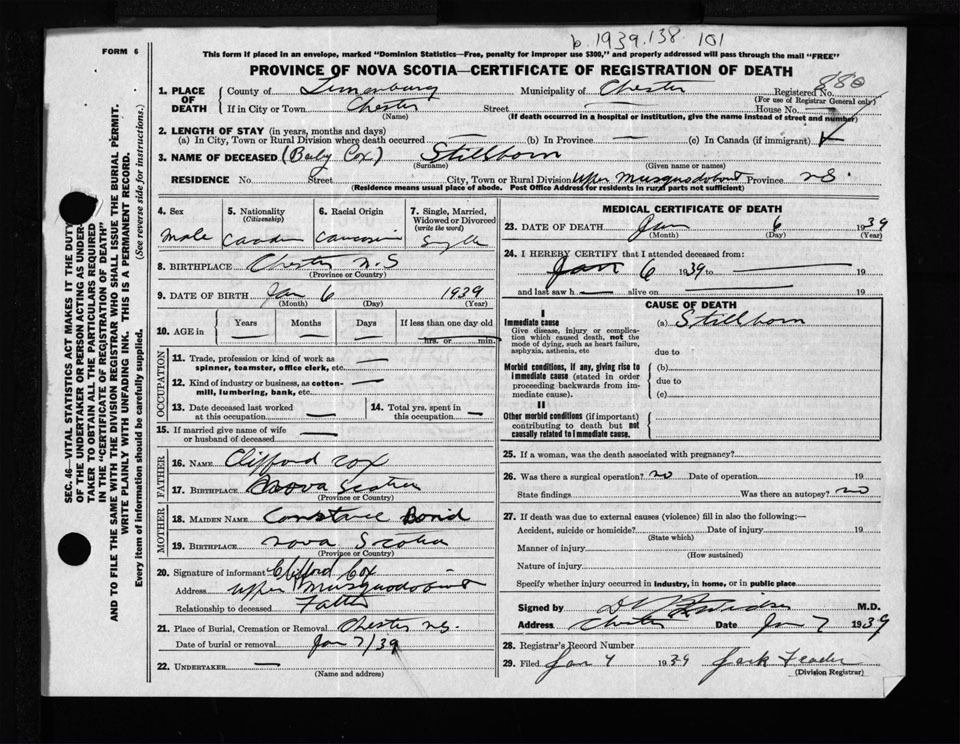 b. 1939. 138. 101
FORM 6
This form if placed in an envelope, marked "Dominion Statistics—Free, penalty for improper use $300," and properly addressed will pass through the mail "FREE"
PROVINCE OF NOVA SCOTIA—CERTIFICATE OF REGISTRATION OF DEATH
880
1. PLACE OF DEATH
County of Lunenburg Municipality of Chester Registered No.
(For use of Registrar General only)
If in City or Town Chester Street — House No.
(Name) (If death occurred in a hospital or institution, give the name instead of street and number)
2. LENGTH OF STAY (in years, months and days)
(a) In City, Town or Rural Division where death occurred — (b) In Province — (c) In Canada (if immigrant)
3. NAME OF DECEASED (Baby Cox) Stillborn
(Surname) (Given name or names)
RESIDENCE No. Street City, Town or Rural Division Upper Musquodoboit Province N.S.
(Residence means usual place of abode. Post Office Address for residents in rural parts not sufficient)
SEC. 46—VITAL STATISTICS ACT MAKES IT THE DUTY
OF THE UNDERTAKER OR PERSON ACTING AS UNDER-
TAKER TO OBTAIN ALL THE PARTICULARS REQUIRED
IN THE "CERTIFICATE OF REGISTRATION OF DEATH"
AND TO FILE THE SAME WITH THE DIVISION REGISTRAR WHO SHALL ISSUE THE BURIAL PERMIT.
WRITE PLAINLY WITH UNFADING INK. THIS IS A PERMANENT RECORD.
Every item of information should be carefully supplied. (See reverse side for instructions.)
4. Sex
Male
5. Nationality
(Citizenship)
6. Racial Origin
7. Single, Married, Widowed or Divorced
(write the word)
Single
8. BIRTHPLACE Chester N.S
(Province or Country)
9. DATE OF BIRTH Jan 6 1939
(Month) (Day) (Year)
10. AGE in Years Months Days If less than one day old
— — — hrs. or min.
OCCUPATION
11. Trade, profession or kind of work as
spinner, teamster, office clerk, etc. —
12. Kind of industry or business, as cotton-
mill, lumbering, bank, etc. —
13. Date deceased last worked
at this occupation —
14. Total yrs. spent in
this occupation —
15. If married give name of wife
or husband of deceased —
FATHER
16. NAME Clifford Cox
17. BIRTHPLACE Nova Scotia
(Province or Country)
MOTHER
18. MAIDEN NAME Constance Bond
19. BIRTHPLACE Nova Scotia
(Province or Country)
20. Signature of informant Clifford Cox
Address Upper Musquodoboit
Relationship to deceased Father
21. Place of Burial, Cremation or Removal Chester N.S.
Date of burial or removal Jan 7/39
22. UNDERTAKER —
(Name and address)
MEDICAL CERTIFICATE OF DEATH
23. DATE OF DEATH Jan 6 1939
(Month) (Day) (Year)
24. I HEREBY CERTIFY that I attended deceased from:
Jan 6 1939 to — 19
and last saw h — alive on — 19
CAUSE OF DEATH
I
Immediate cause
Give disease, injury or complica-
tion which caused death, not the
mode of dying, such as heart failure,
asphyxia, asthenia, etc
(a) Stillborn
due to
Morbid conditions, if any, giving rise to
immediate cause (stated in order
proceeding backwards from im-
mediate cause).
(b)
due to
(c)
II
Other morbid conditions (if important)
contributing to death but not
causally related to immediate cause.
25. If a woman, was the death associated with pregnancy?
26. Was there a surgical operation? no Date of operation 19
State findings Was there an autopsy? no
27. If death was due to external causes (violence) fill in also the following:—
Accident, suicide or homicide? Date of injury 19
(State which)
Manner of injury
(How sustained)
Nature of injury
Specify whether injury occurred in industry, in home, or in public place
Signed by M.D.
Address Chester Date Jan 7 1939
28. Registrar's Record Number
29. Filed Jan 7 1939 Jack
(Division Registrar)